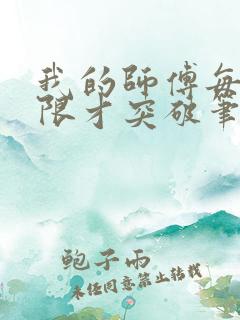 我的師傅每
限才突破筆
鲍子雨
未经同意禁止转载